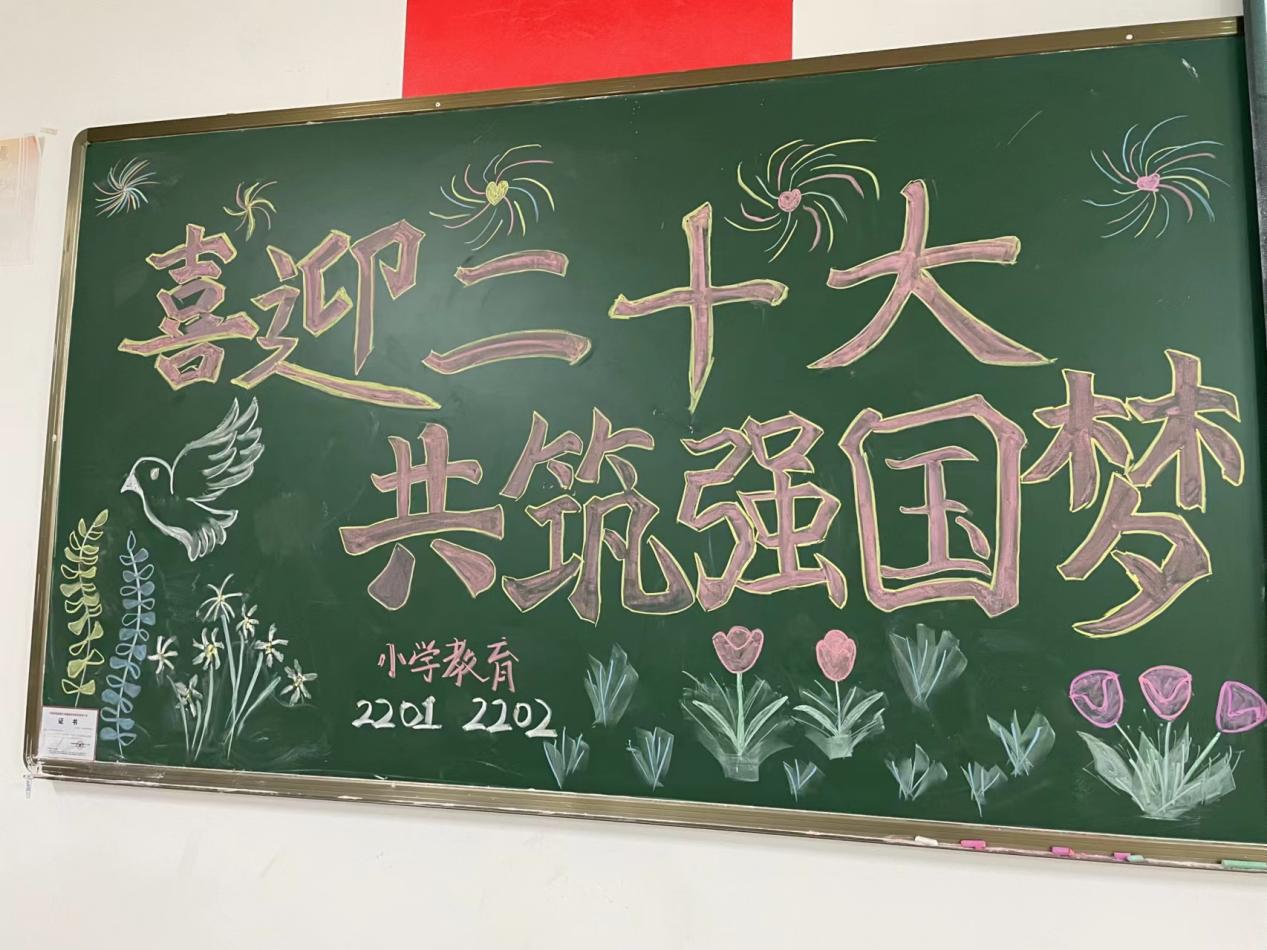 喜迎二十大
共筑强国梦
小学教育
2201 2202
证 书